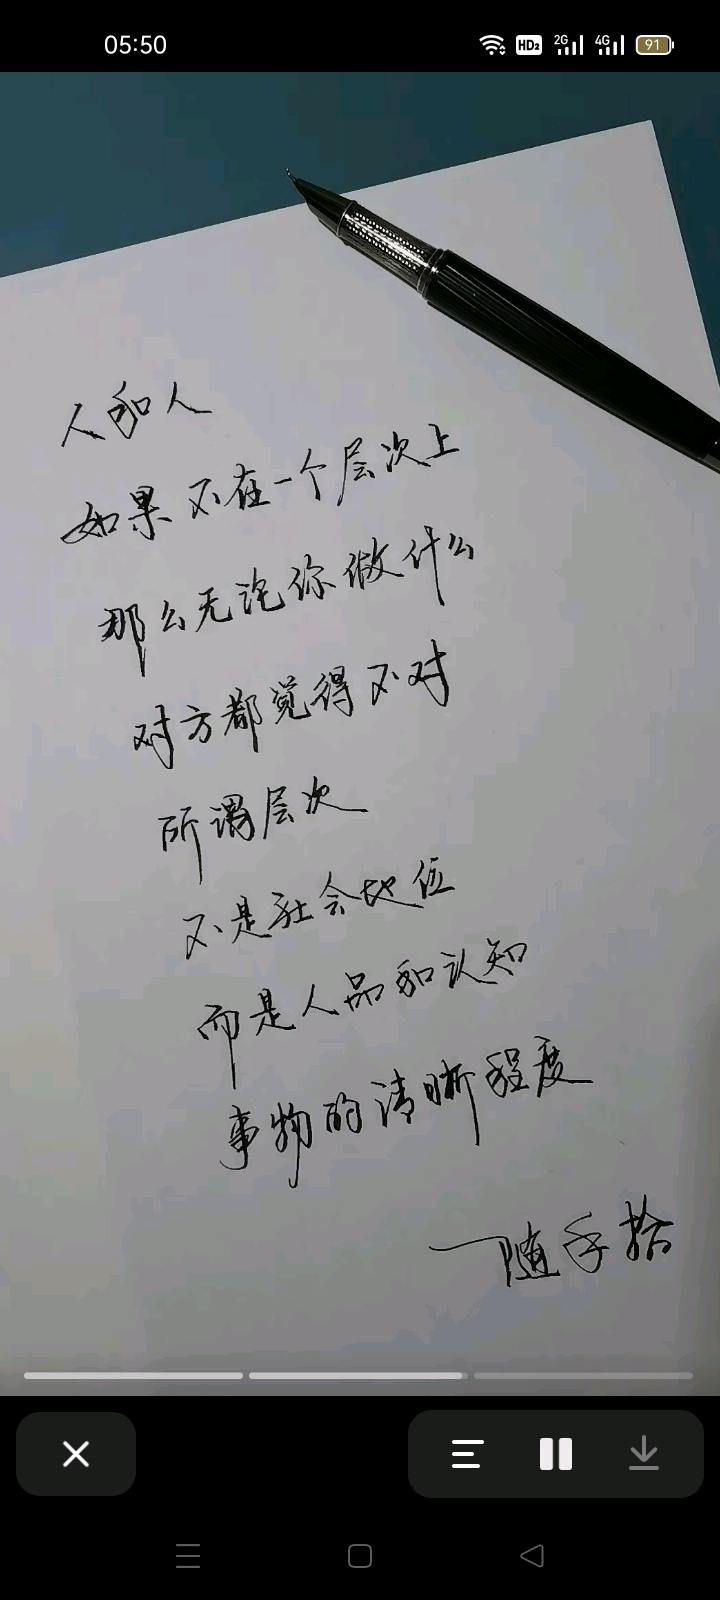 05:50
HD2 2G 4G 91
人和人
如果不在一个层次上
那么无论你做什么
对方都觉得不对
所谓层次
不是社会地位
而是人品和认知
事物的清晰程度
一随手拾